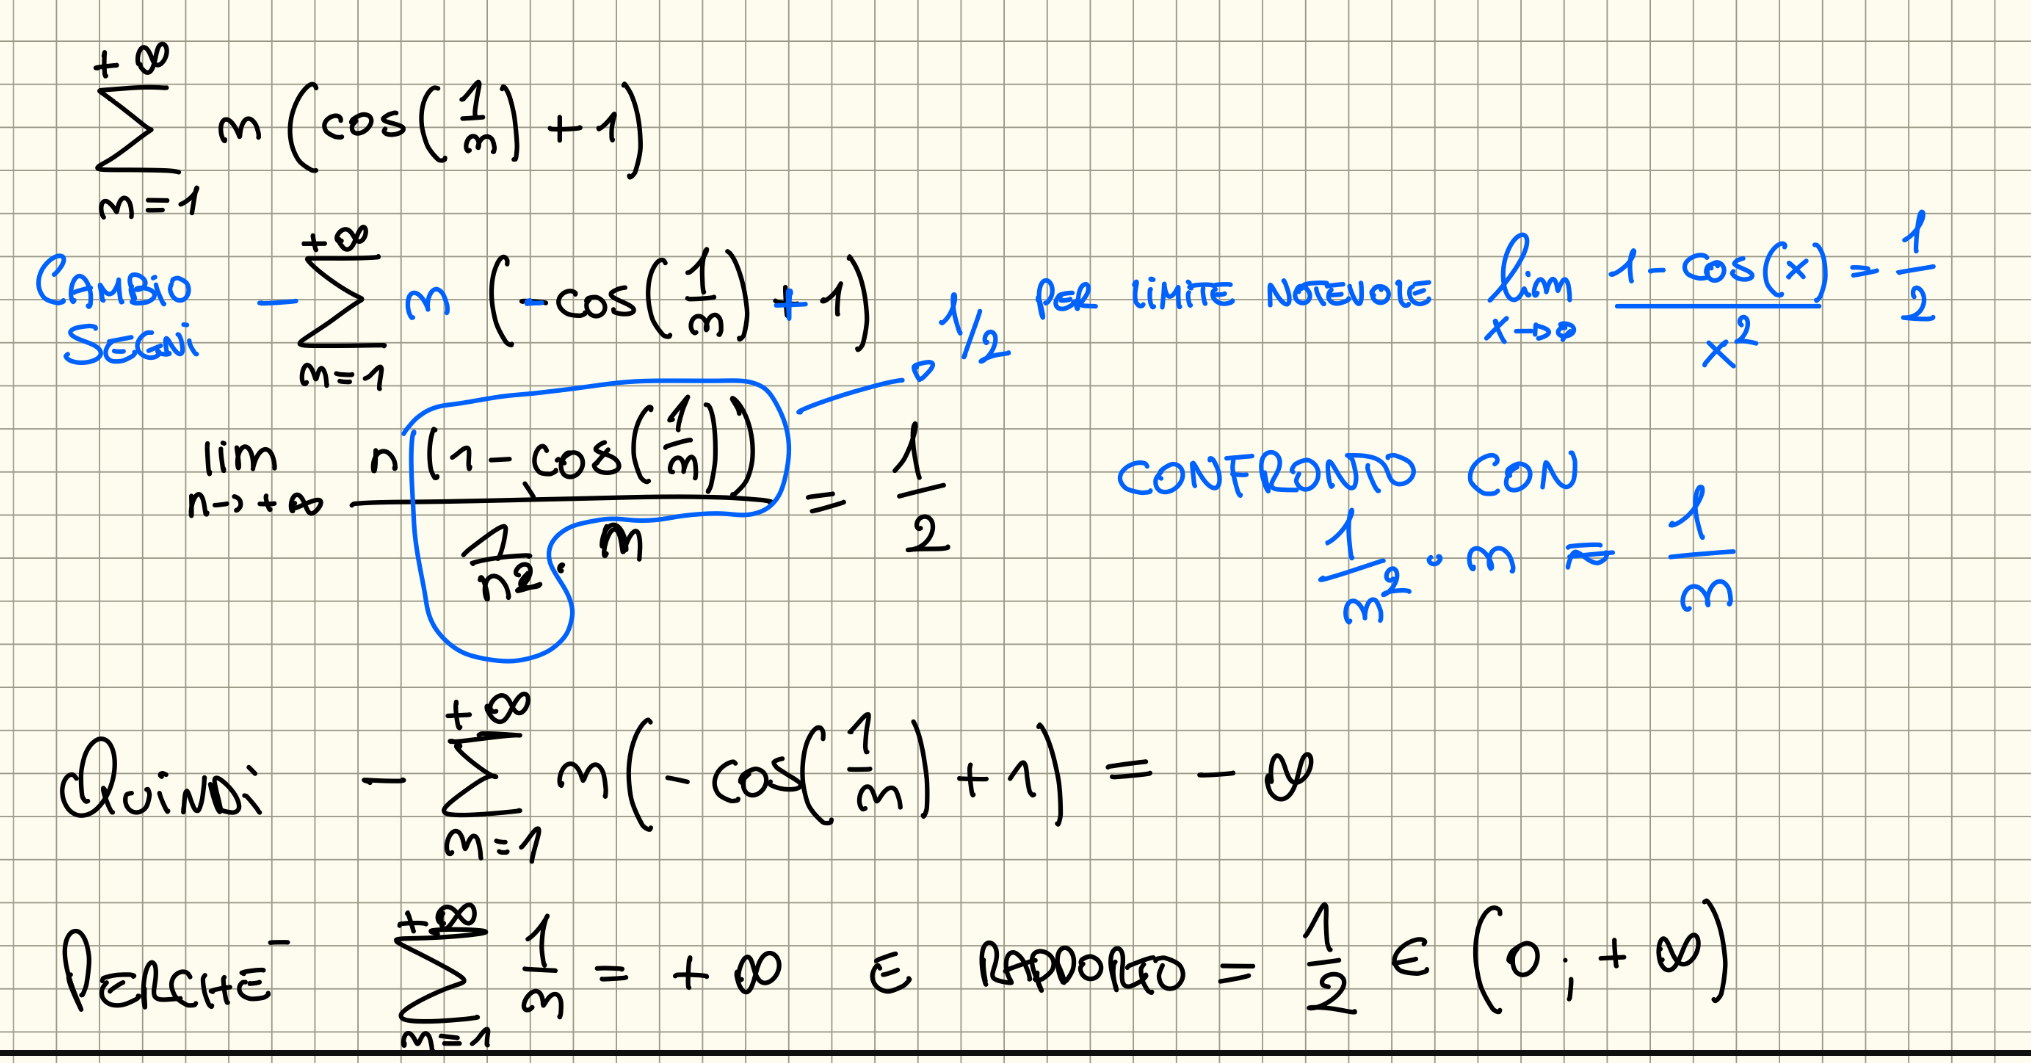 +∞ ∑ n=1 n (cos(1/n) + 1)
CAMBIO SEGNI − +∞ ∑ n=1 n (−cos(1/n) + 1) 1/2 PER LIMITE NOTEVOLE lim x→0 1−cos(x)/x² = 1/2
lim n→+∞ n(1−cos(1/n)) / 1/n² · n = 1/2 CONFRONTO CON 1/n² · n = 1/n
QUINDI − +∞ ∑ n=1 n(−cos(1/n) + 1) = −∞
PERCHÉ +∞ ∑ n=1 1/n = +∞ E RAPPORTO = 1/2 ∈ (0;+∞)